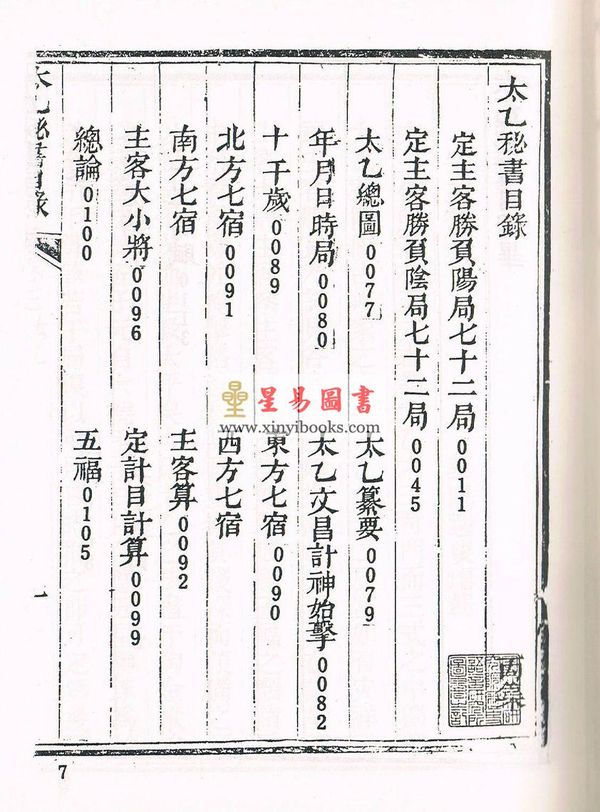 太乙秘書目錄
丙集
定主客勝負陽局七十二局0011
定主客勝負陰局七十二局0045
太乙總圖0077
太乙纂要0079
年月日時局0080
太乙文昌計神始擊0082
十干歲0089
東方七宿0090
北方七宿0091
西方七宿
南方七宿
主客算0092
主客大小將0096
定計目計算0099
總論0100
五福0105
太乙秘書目錄
一
7
星易圖書
www.xinyibooks.com